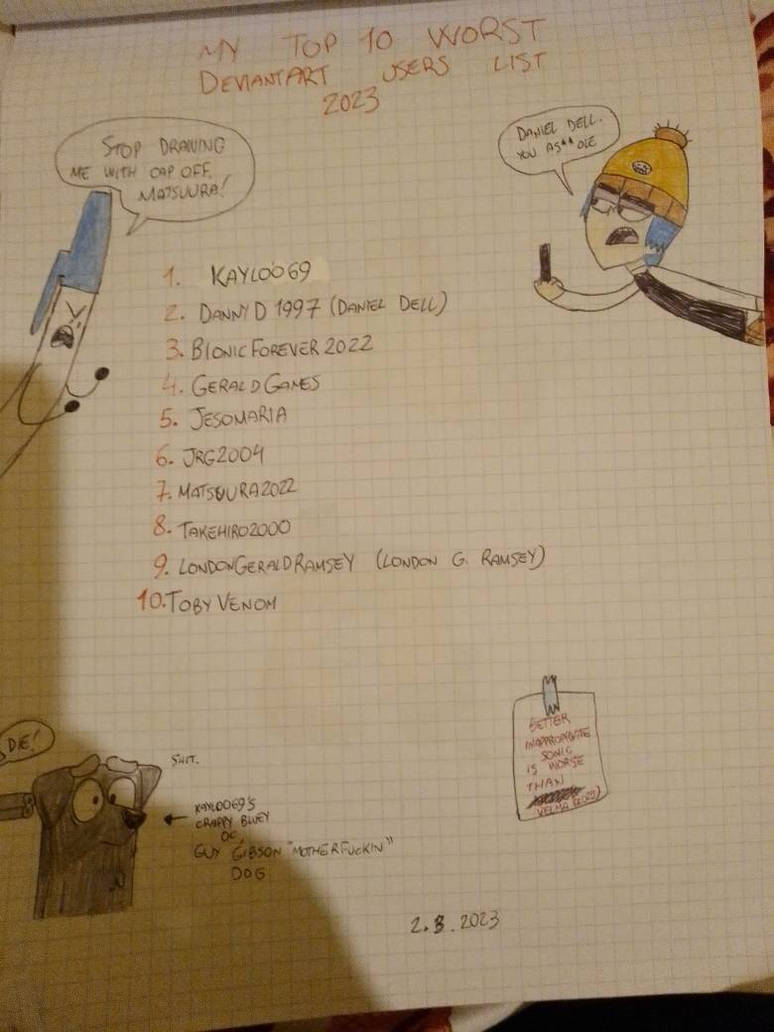 MY TOP 10 WORST
DEVIANTART USERS LIST
2023
STOP DRAWING
ME WITH CAP OFF,
MATSUURA!
DANIEL DELL.
YOU AS**OLE
1. KAYLOO69
2. DANNYD1997 (DANIEL DELL)
3. BIONICFOREVER2022
4. GERALDGAMES
5. JESOMARIA
6. JRG2004
7. MATSUURA2022
8. TAKEHIRO2000
9. LONDONGERALDRAMSEY (LONDON G. RAMSEY)
10. TOBYVENOM
BETTER
INAPPROPRIATE
SONIC
IS WORSE
THAN
VELMA (2023)
DIE!
SHIT.
KAYLOO69'S
CRAPPY BLUEY
OC,
GUY GIBSON "MOTHERFUCKIN"
DOG
2.3.2023